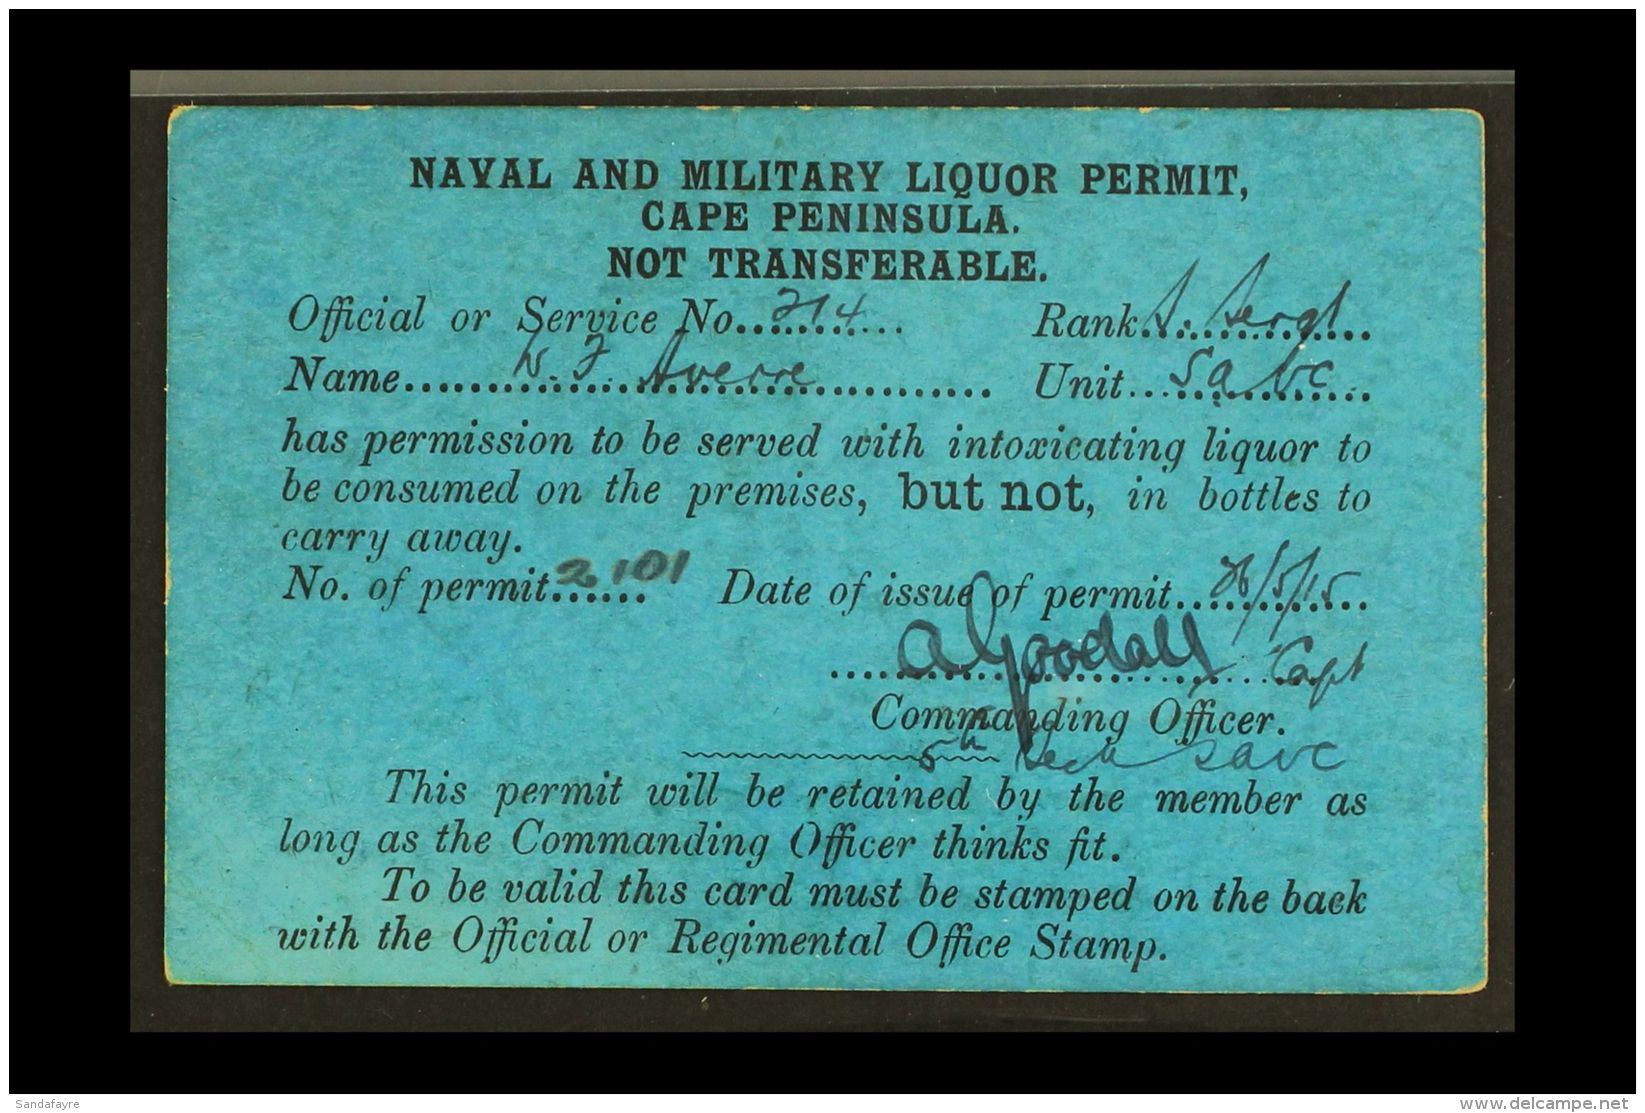 NAVAL AND MILITARY LIQUOR PERMIT,
CAPE PENINSULA.
NOT TRANSFERABLE.
Official or Service No. 214 Rank S. Sergt
Name Averre Unit
has permission to be served with intoxicating liquor to
be consumed on the premises, but not, in bottles to
carry away.
No. of permit 2101 Date of issue of permit 26/5/15
A Goodall Capt
Commanding Officer.
5th
This permit will be retained by the member as
long as the Commanding Officer thinks fit.
To be valid this card must be stamped on the back
with the Official or Regimental Office Stamp.
Sandafayre
www.delcampe.net